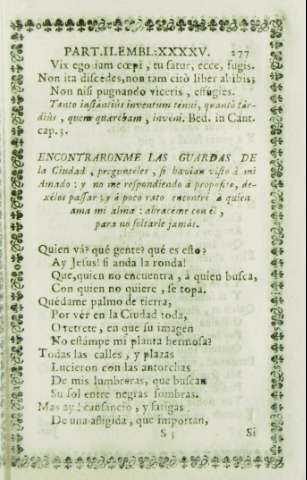 PART.II.EMBL:XXXXV. 277
Vix ego iam cœpi, tu satur, ecce, fugis.
Non ita discedes, non tam citò liber abibis;
Non nisi pugnando viceris, effugies.
Tanto instantiùs inventum tenui, quantò tar-
diùs, quem quærebam, inveni. Bed. in Cant.
cap. 3.
ENCONTRARONME LAS GUARDAS DE
la Ciudad, pregunteles, si havian visto à mi
Amado: y no me respondiendo à proposito, de-
xèlos passar: y à poco rato encontrè à quien
ama mi alma: abraceme con èl,
para no soltarle jamàs.
Quien và? què gente? què es esto?
Ay Jesus! si anda la ronda!
Que, quien no encuentra, à quien busca,
Con quien no quiere, se topa.
Quedame palmo de tierra,
Por vèr en la Ciudad toda,
O retrete, en que su imagen
No estampe mi planta hermosa?
Todas las calles, y plazas
Lucieron con las antorchas
De mis lumbreras, que buscan
Su sol entre negras sombras.
Mas ay! cansancio, y fatigas
De una afligida, que importan,
S 3 Si